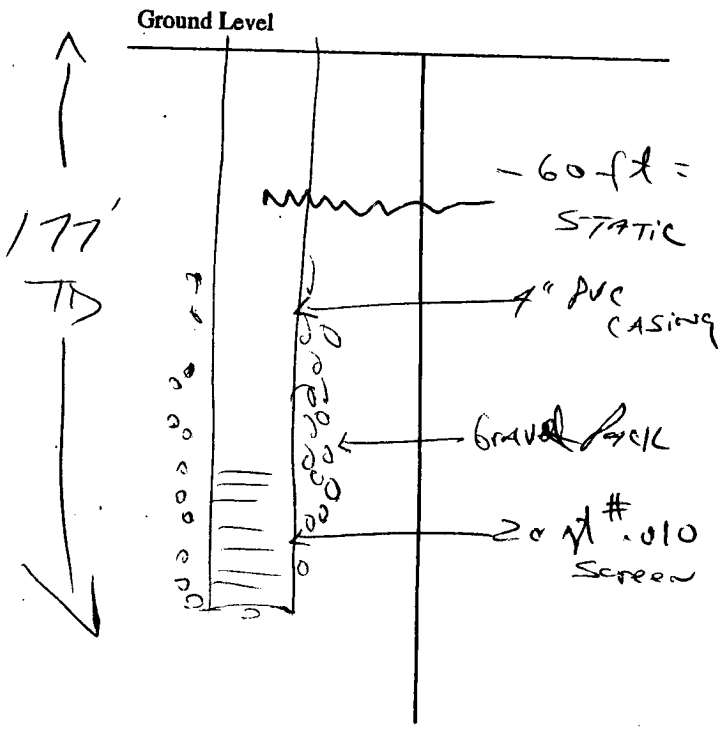 Ground Level
- 60 ft =
STATIC
177'
TD
4" PVC
CASING
Gravel Pack
20 ft # .010
Screen